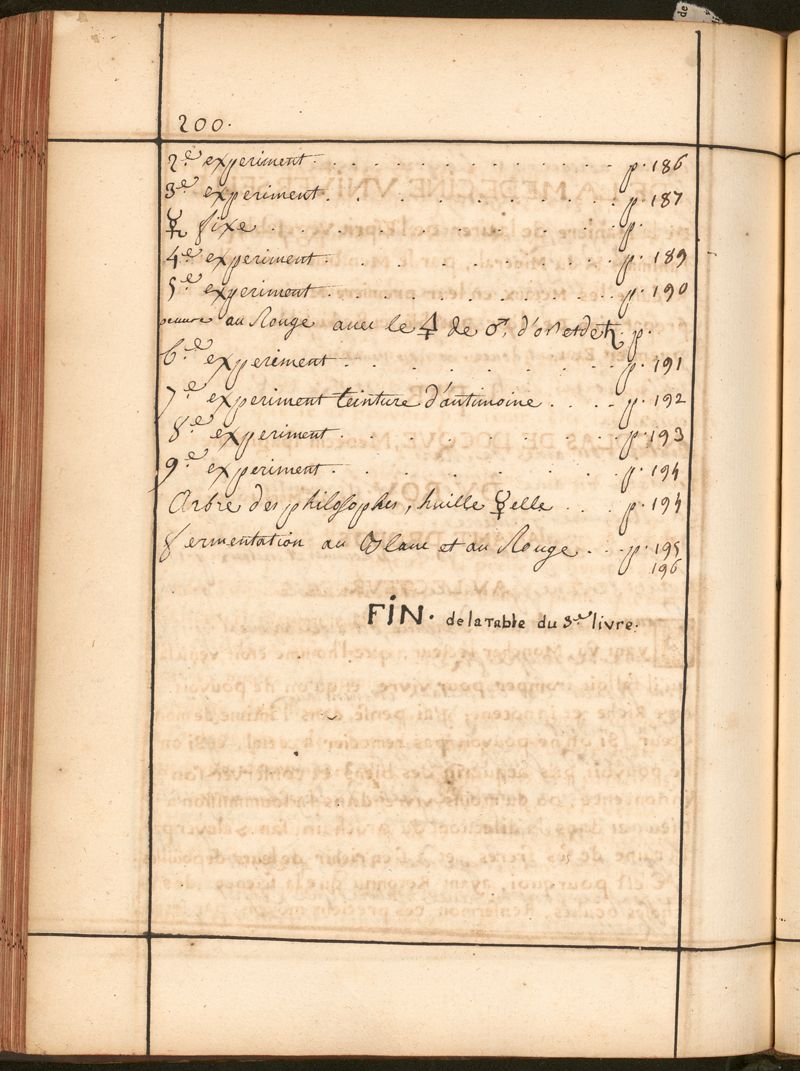 200.
2.e experiment . . . . . . . . . . p. 186
3.e experiment . . . . . . . . . . p. 187
☿ fixe . . . . . . . . . . p.
4.e experiment . . . . . . . . . . p. 189
5.e experiment . . . . . . . . . . p. 190
au Rouge auec le 🜍 de ♂, d'or et de ♄. p.
6.e experiment . . . . . . . . . . p. 191
7.e experiment teinture d'antimoine . . . . p. 192
8.e experiment . . . . . . . . . . p. 193
9.e experiment . . . . . . . . . . p. 194
Arbre des philosophes, huille ☿elle . . . p. 194
fermentation au Blanc et au Rouge . . . p. 195
196
FIN. de la Table du 3.e livre.